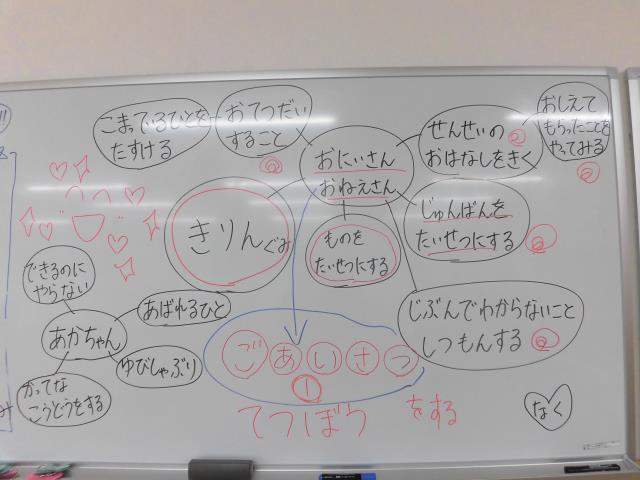 こまっているひとを
たすける
おてつだい
すること
おにいさん
おねえさん
せんせいの
おはなしをきく
おしえて
もらったことを
やってみる
きりんぐみ
ものを
たいせつにする
じゅんばんを
たいせつにする
できるのに
やらない
あばれるひと
あかちゃん
ゆびしゃぶり
かってな
こうどうをする
じぶんでわからないこと
しつもんする
ごあいさつ
①
てつぼう をする
なく